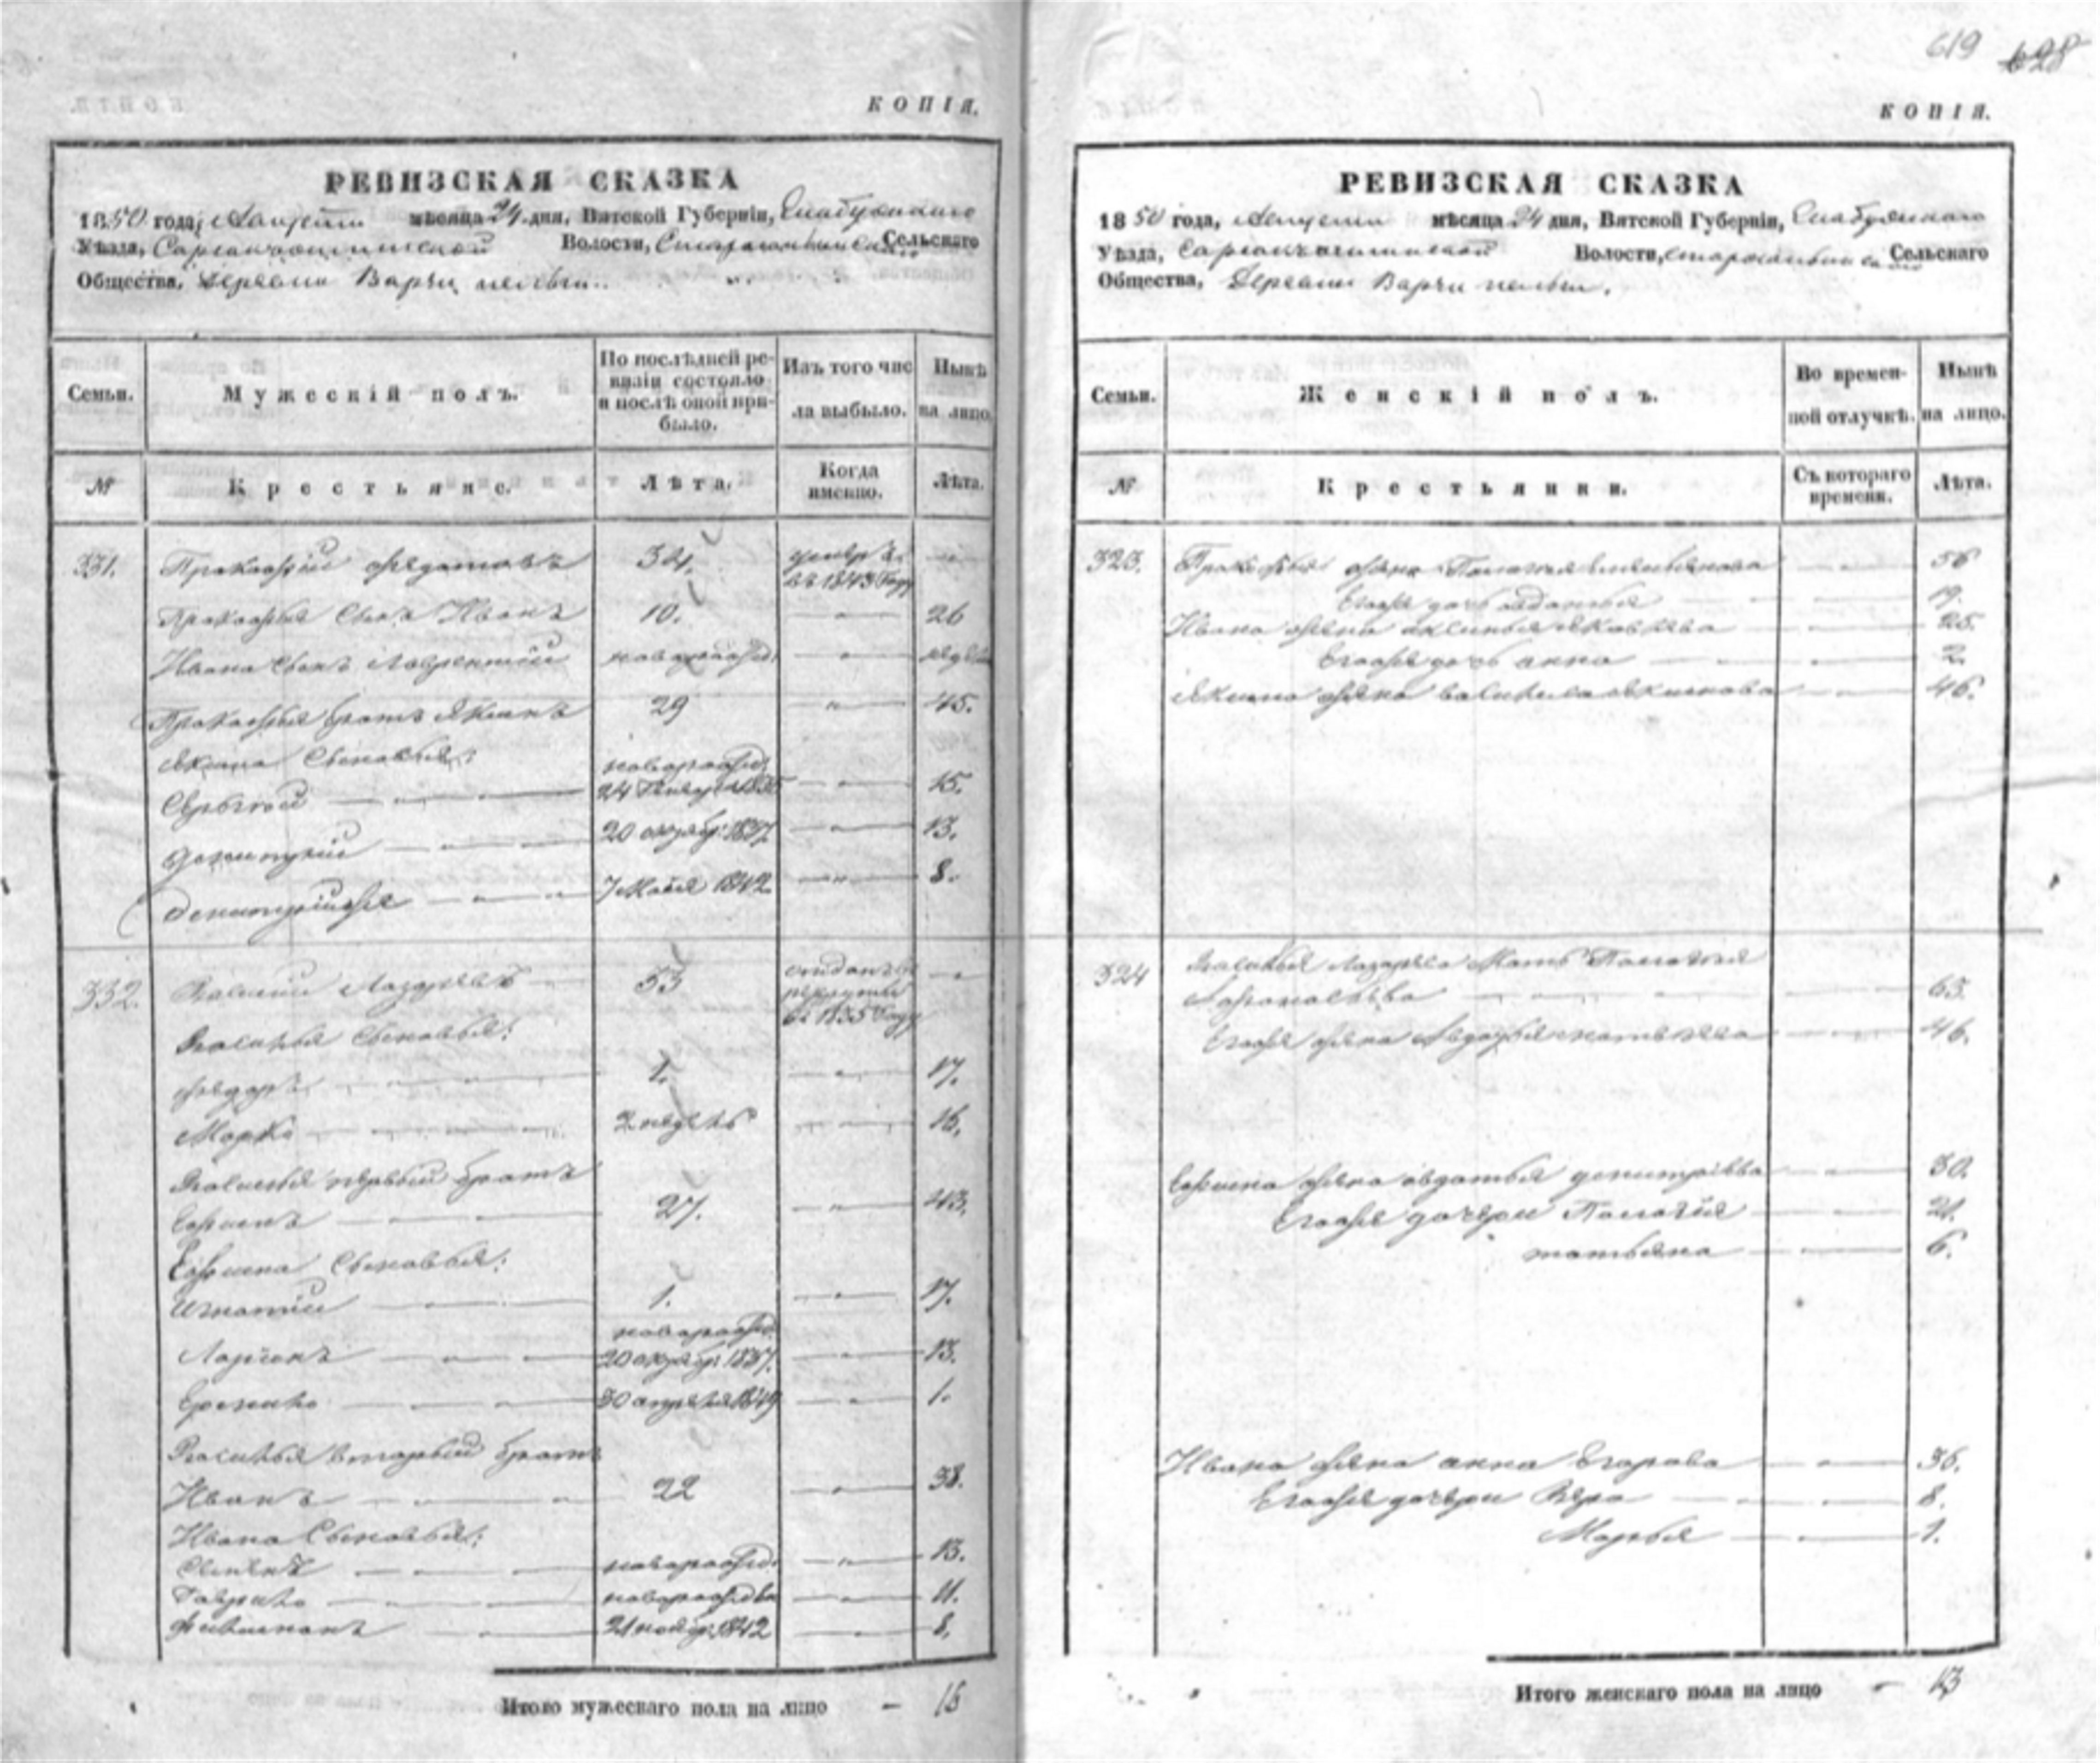 КОПІЯ.
РЕВИЗСКАЯ СКАЗКА
1850 года, мѣсяца 24 дня, Вятской Губерніи, Елабужскаго
Уѣзда, Волости, Сельскаго
Общества, Деревни Варчи пельги.
Семьи.
Мужескій полъ.
По послѣдней ре-
визіи состояло
и послѣ оной при-
было.
Изъ того чис
ла выбыло.
Нынѣ
на лицо.
№
Крестьяне.
Лѣта.
Когда
именно.
Лѣта.
331. Прокофій Федотовъ 34. умеръ
въ 1843 году
Прокофья сынъ Иванъ 10. 26
Ивана сынъ Лаврентій новорожд.
Прокофья братъ Якимъ 29 45.
Якима сыновья: новорожд.
24 Генвар 1835 15.
20 октябр: 1837 13.
7 Маія 1842. 8.
332. Василій Лазаревъ 33 отданъ въ
рекруты
въ 1835 году
Василья сыновья:
Федоръ 1. 17.
Марко 2 недѣль 16.
Василья первый братъ
Ефимъ 27. 43.
Ефима сыновья:
Игнатій 1. 17.
новорожд.
Ларіонъ 20 октябр: 1837. 13.
Гаврило 30 апрѣля 1849 1.
Василья второй братъ
Иванъ 22 38.
Ивана сыновья:
Семенъ новорожд. 13.
Гаврило 11.
21 нояб: 1842 8.
Итого мужескаго пола на лицо – 16
619 628
КОПІЯ.
РЕВИЗСКАЯ СКАЗКА
1850 года, мѣсяца 24 дня, Вятской Губерніи, Елабужскаго
Уѣзда, Волости, Сельскаго
Общества, Деревни Варчи пельги.
Семьи.
Женскій полъ.
Во времен-
ной отлучкѣ.
Нынѣ
на лицо.
№
Крестьянки.
Съ котораго
времени.
Лѣта.
323. Прокофья жена Пелагея Емельянова 56
Егоже дочь Авдотья 19.
Ивана жена Акулина Яковлева 25.
Егоже дочь Анна 2.
Якима жена Василиса 46.
324 Василья Лазарева мать Пелагея
Афонасьева 65.
Егоже жена Авдотья Матвѣева 46.
Ефима жена Авдотья Дмитріева 30.
Егоже дочери Пелагія 21.
Татьяна 6.
Ивана жена Анна Егорова 36.
Егоже дочери Вера 8.
Марья 1.
Итого женскаго пола на лицо – 13